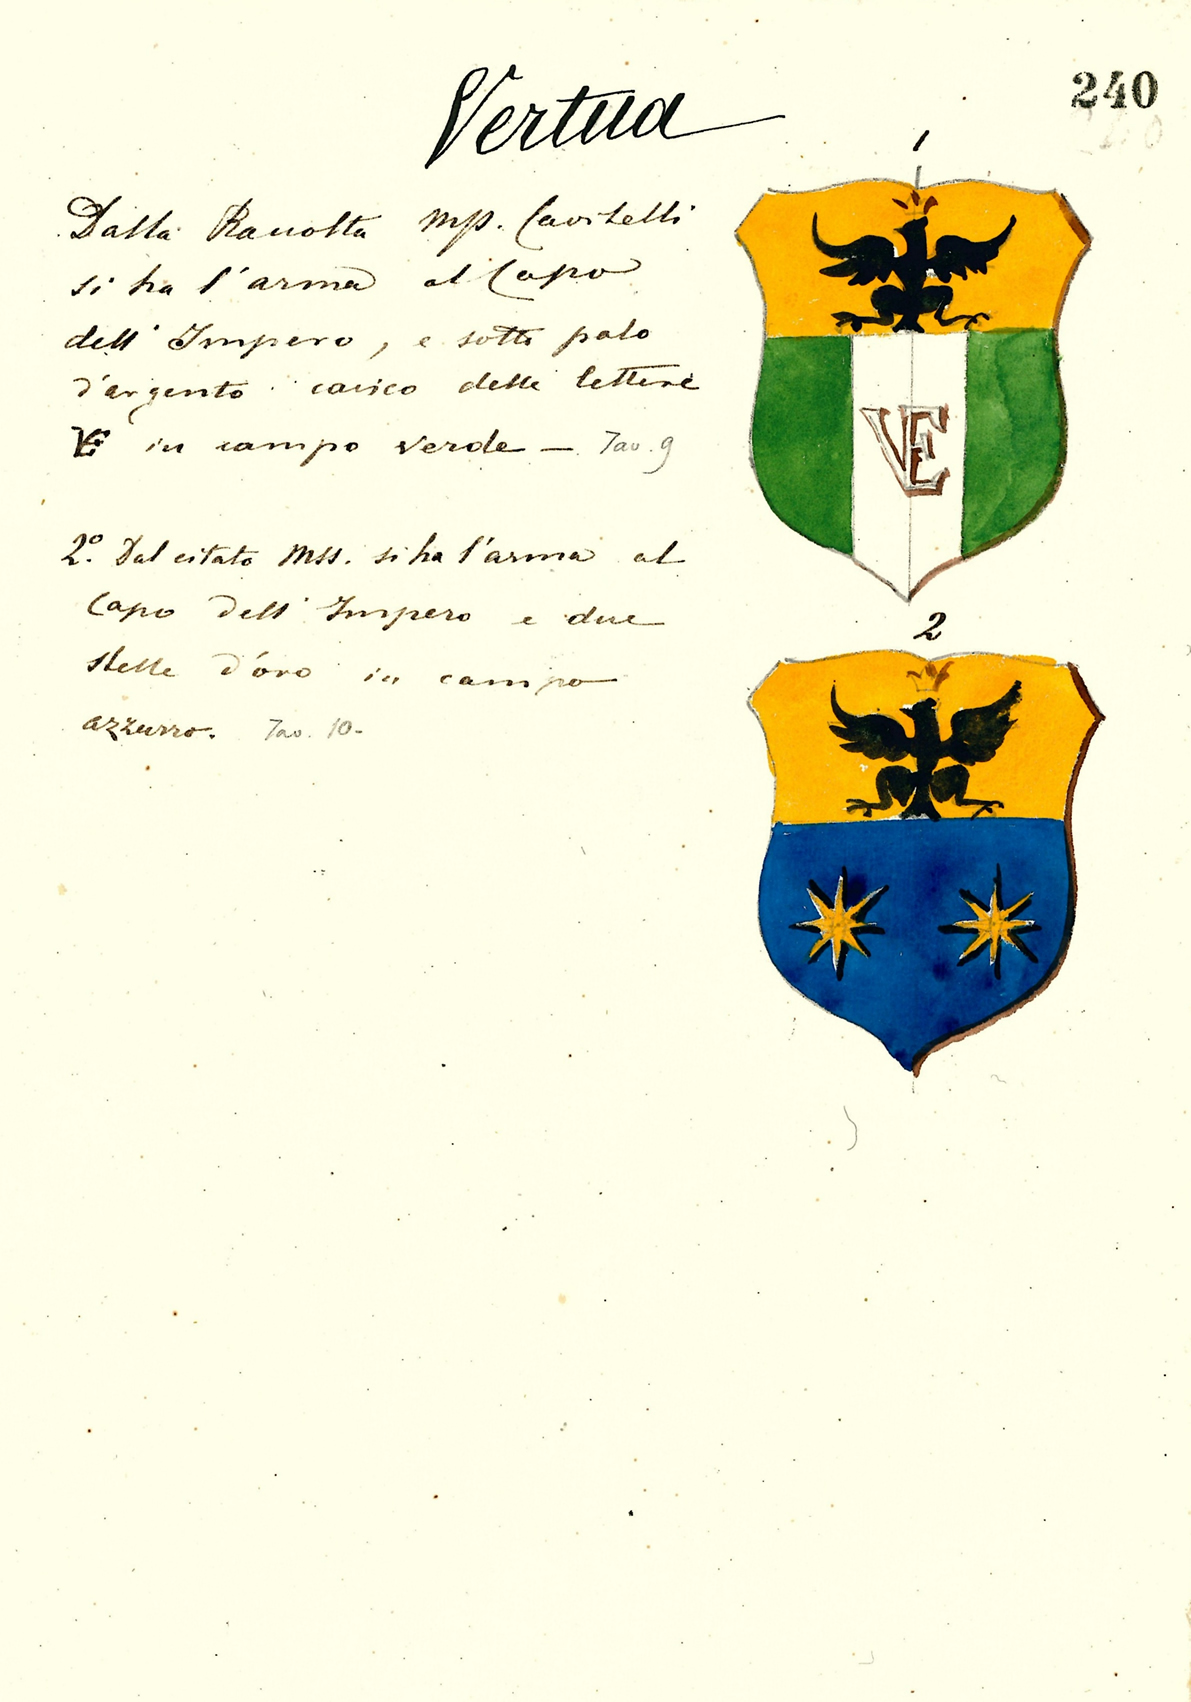 240
Vertua
Dalla Raccolta mp. Cavitelli
si ha l'arma al Capo
dell' Impero, e sotto palo
d'argento carico delle lettere
VE in campo verde — Tav. 9
2º. Dal citato Mss. si ha l'arma al
Capo dell' Impero e due
stelle d'oro in campo
azzurro. Tav. 10-
1
VE
2